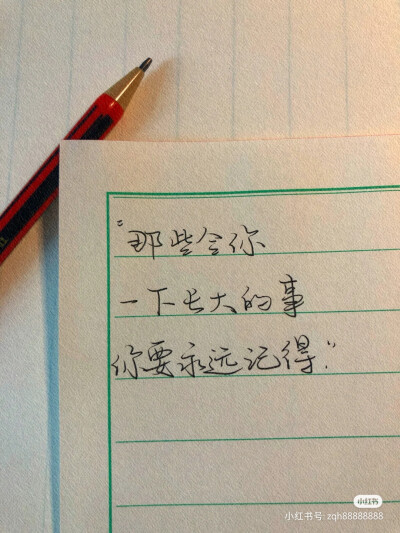 “那些令你
一下长大的事
你要永远记得.”
小红书
小红书号: zqh88888888